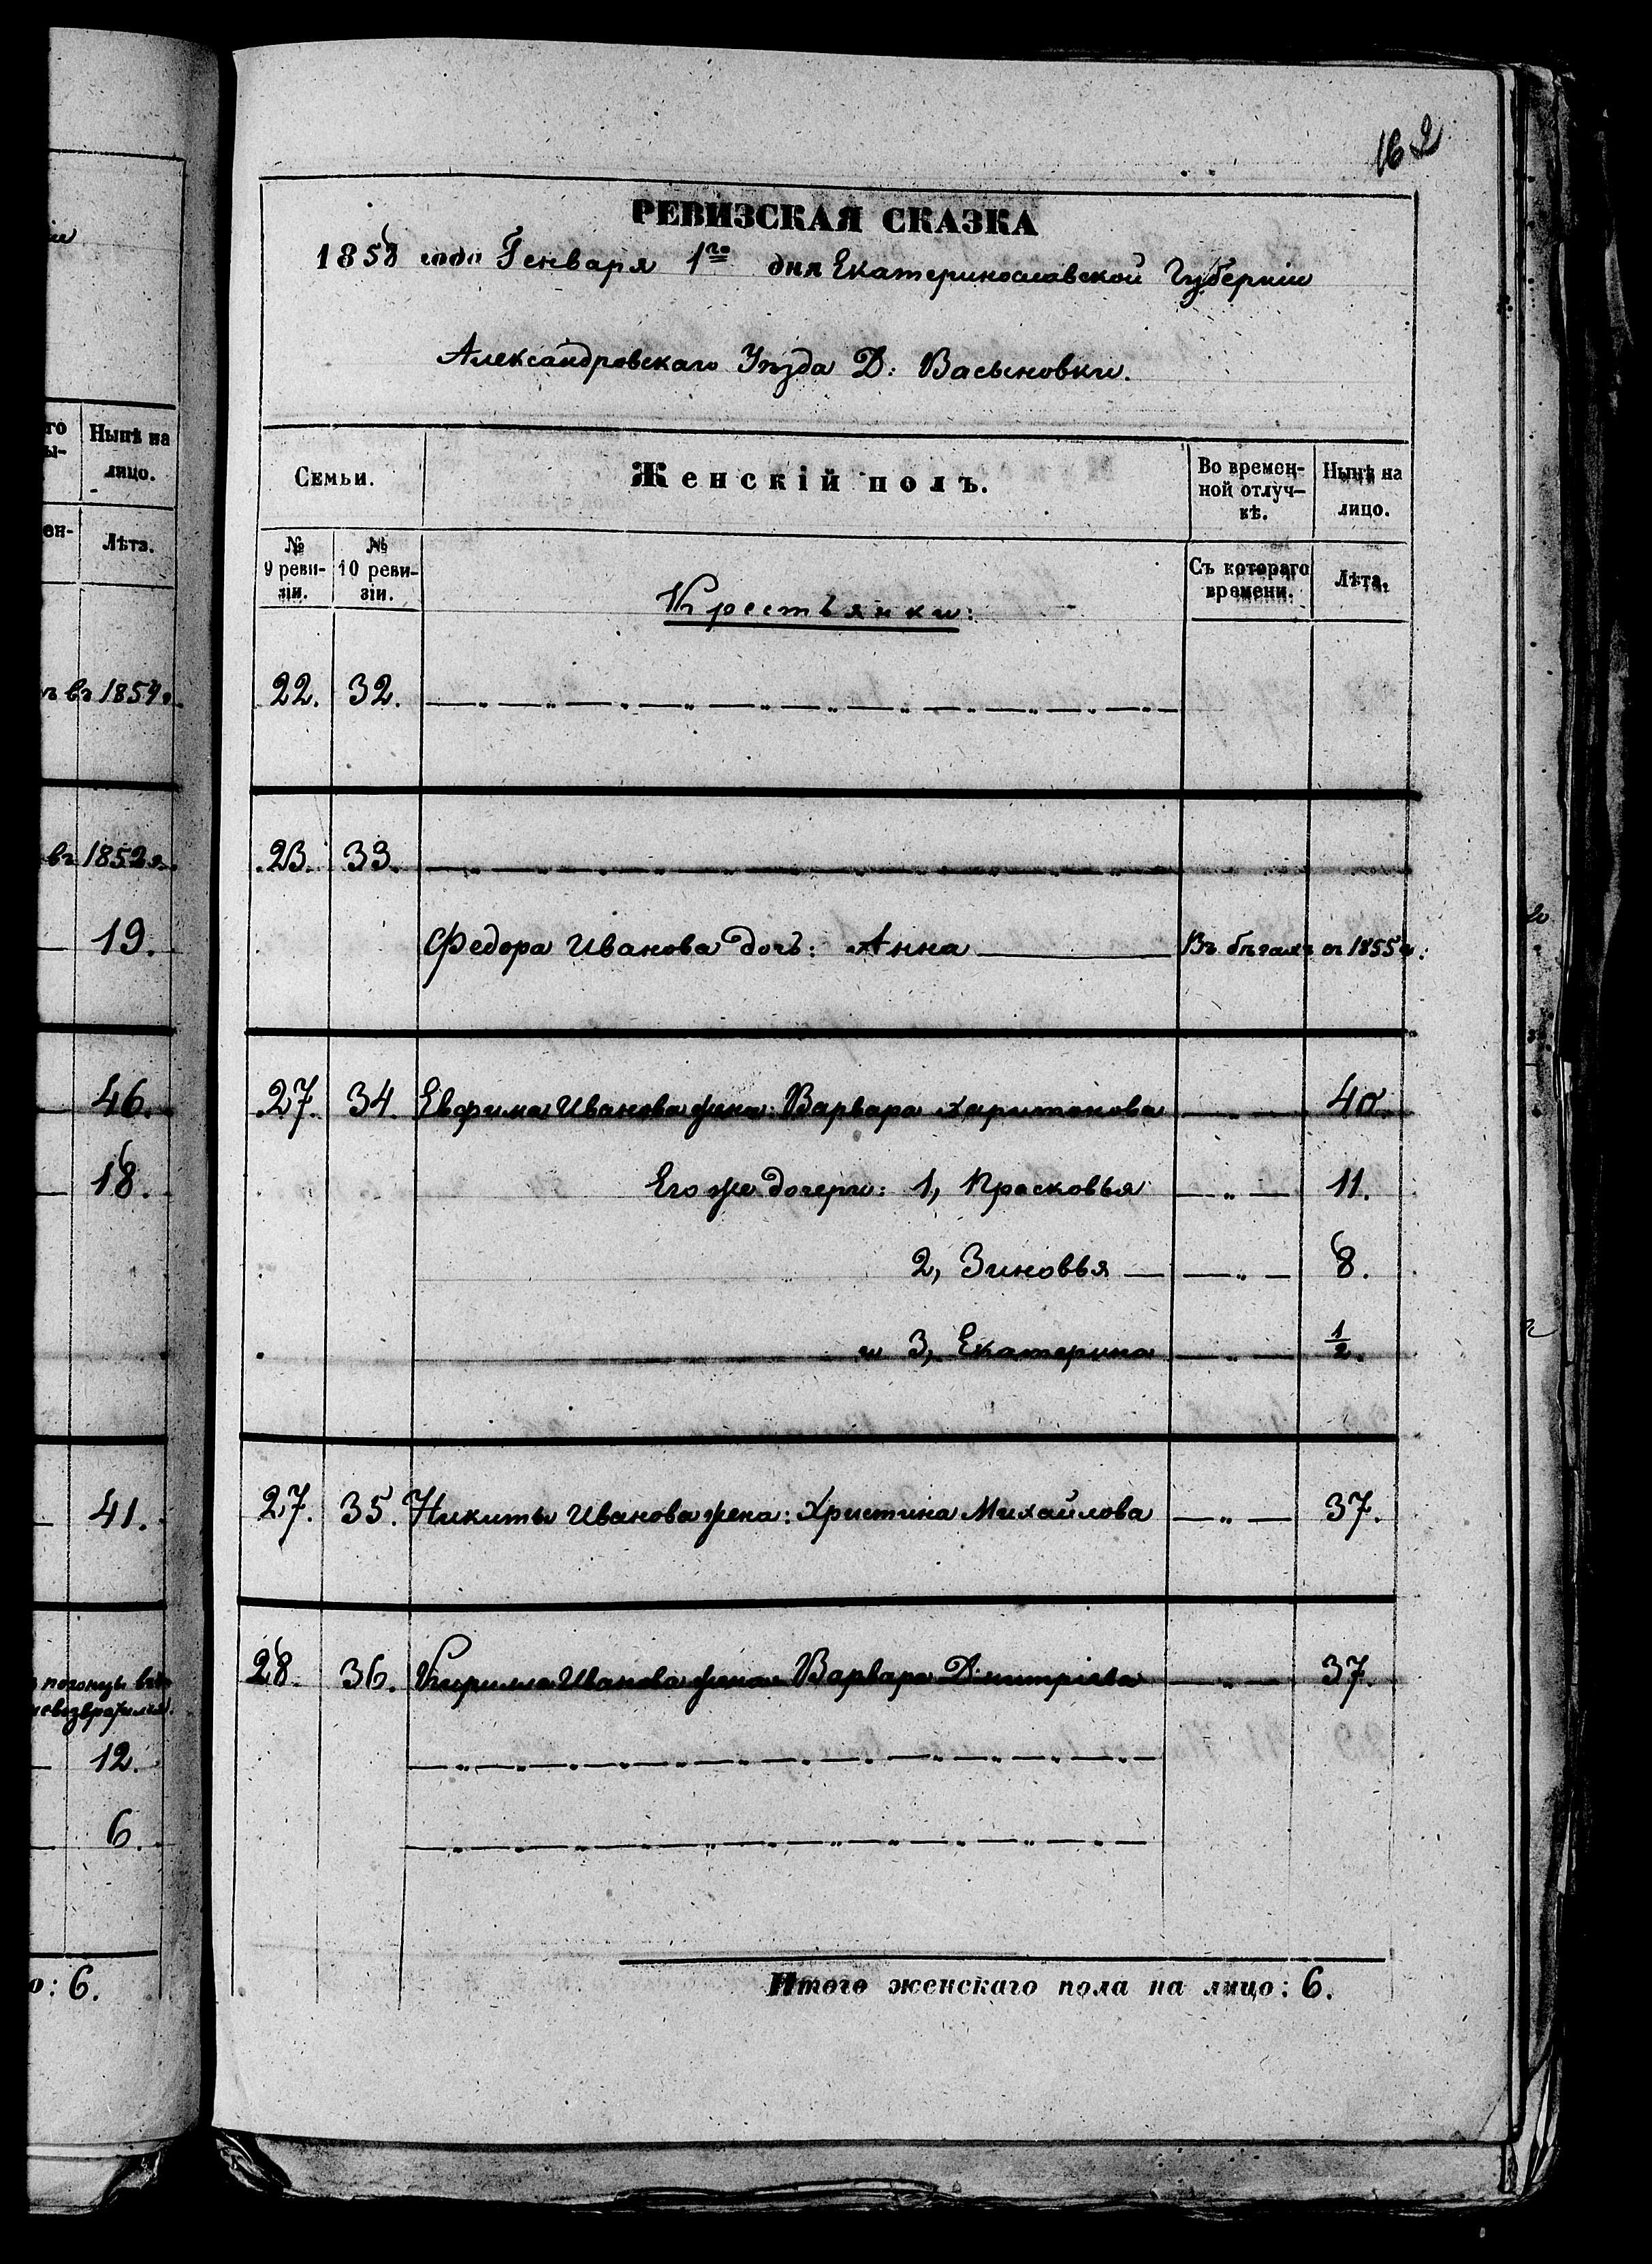 162
РЕВИЗСКАЯ СКАЗКА
1858 года Генваря 1го дня Екатеринославской Губерніи
Александровскаго Уѣзда Д: Васыновки.
го
ы-
Нынѣ на
лицо.
ен-
Лѣта.
въ 1854г.
въ 1852г.
19.
46.
18.
41.
погонцы въ
невозвратился.
12.
6.
о: 6.
Семьи.
Женскій полъ.
Во времен-
ной отлуч-
кѣ.
Нынѣ на
лицо.
№
9 реви-
зіи.
№
10 реви-
зіи.
Съ котораго
времени.
Лѣта.
Крестьянки:
22. 32.
23. 33.
Федора Иванова дочь: Анна Въ бѣгахъ съ 1855г:
27. 34. Евфима Иванова жена: Варвара Харитонова — „ — 40.
Его же дочери: 1, Прасковья — „ — 11.
2, Зиновья — „ — 8.
и 3, Екатерина — „ — 1/2.
27. 35. Никиты Иванова жена: Христина Михайлова — „ — 37.
28. 36. Кирилла Иванова жена Варвара Димитріева — „ — 37.
Итого женскаго пола на лицо: 6.